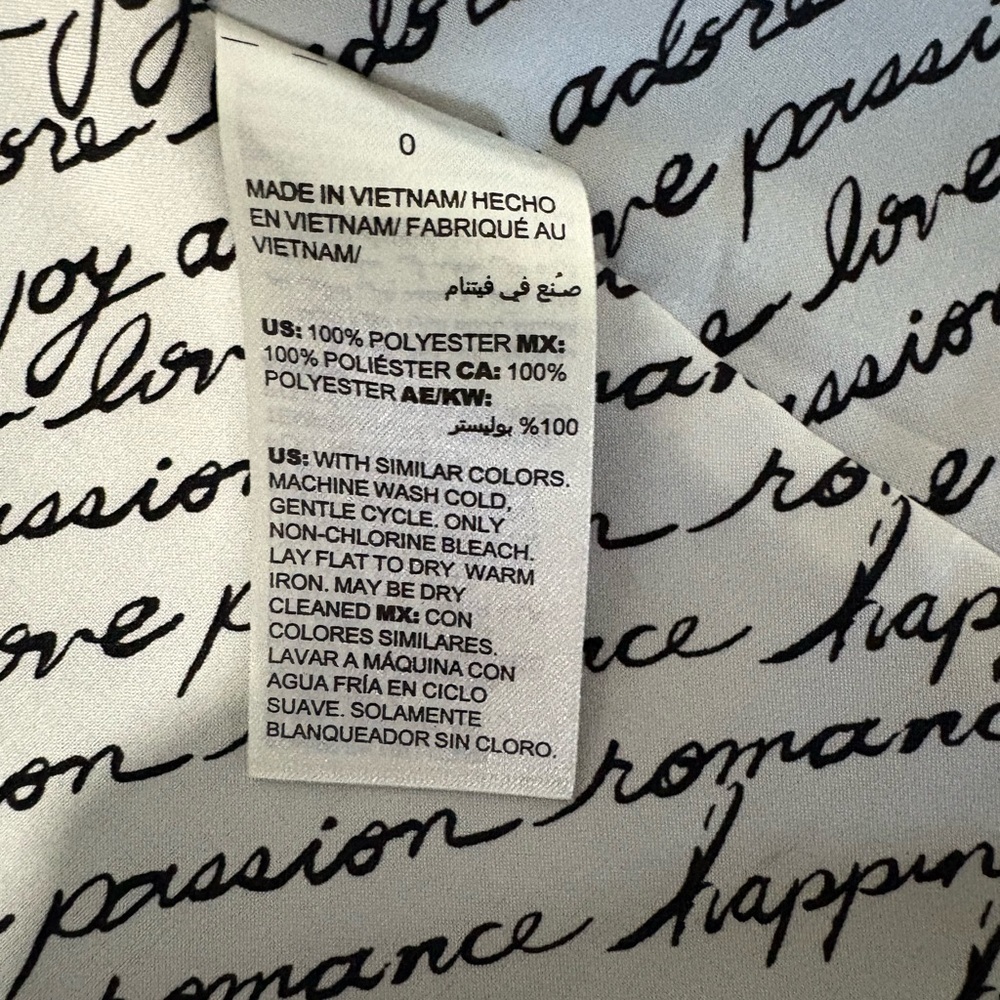 adore
ore
adore
0
passi
MADE IN VIETNAM/ HECHO
EN VIETNAM/ FABRIQUÉ AU
VIETNAM/
صُنع في فيتنام
joy a
love
US: 100% POLYESTER MX:
100% POLIÉSTER CA: 100%
POLYESTER AE/KW:
100% بوليستر
lov
ssion
US: WITH SIMILAR COLORS.
MACHINE WASH COLD,
GENTLE CYCLE. ONLY
NON-CHLORINE BLEACH.
LAY FLAT TO DRY WARM
IRON. MAY BE DRY
CLEANED MX: CON
COLORES SIMILARES.
LAVAR A MÁQUINA CON
AGUA FRÍA EN CICLO
SUAVE. SOLAMENTE
BLANQUEADOR SIN CLORO.
ssion
ove p
nce happ
on
passion romanc
omance happin